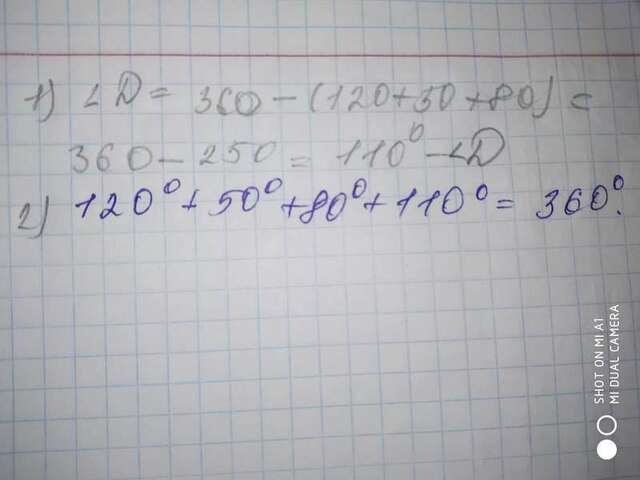 1) ∠D = 360 - (120+50+80) =
360 - 250 = 110⁰ - ∠D
2) 120⁰ + 50⁰ + 80⁰ + 110⁰ = 360⁰.
SHOT ON MI A1
MI DUAL CAMERA